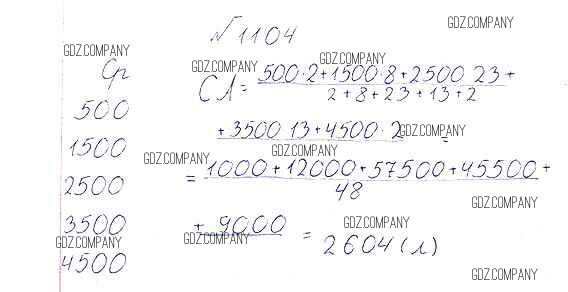 №1104
Ср
500
1500
2500
3500
4500
СЛ = 500·2+1500·8+2500 23+
2+8+23+13+2
+3500 13+4500·2 =
= 1000+12000+57500+45500+
48
+ 9000 = 2604 (л)
GDZ.COMPANY
GDZ.COMPANY
GDZ.COMPANY
GDZ.COMPANY
GDZ.COMPANY
GDZ.COMPANY
GDZ.COMPANY
GDZ.COMPANY
GDZ.COMPANY
GDZ.COMPANY
GDZ.COMPANY
GDZ.COMPANY